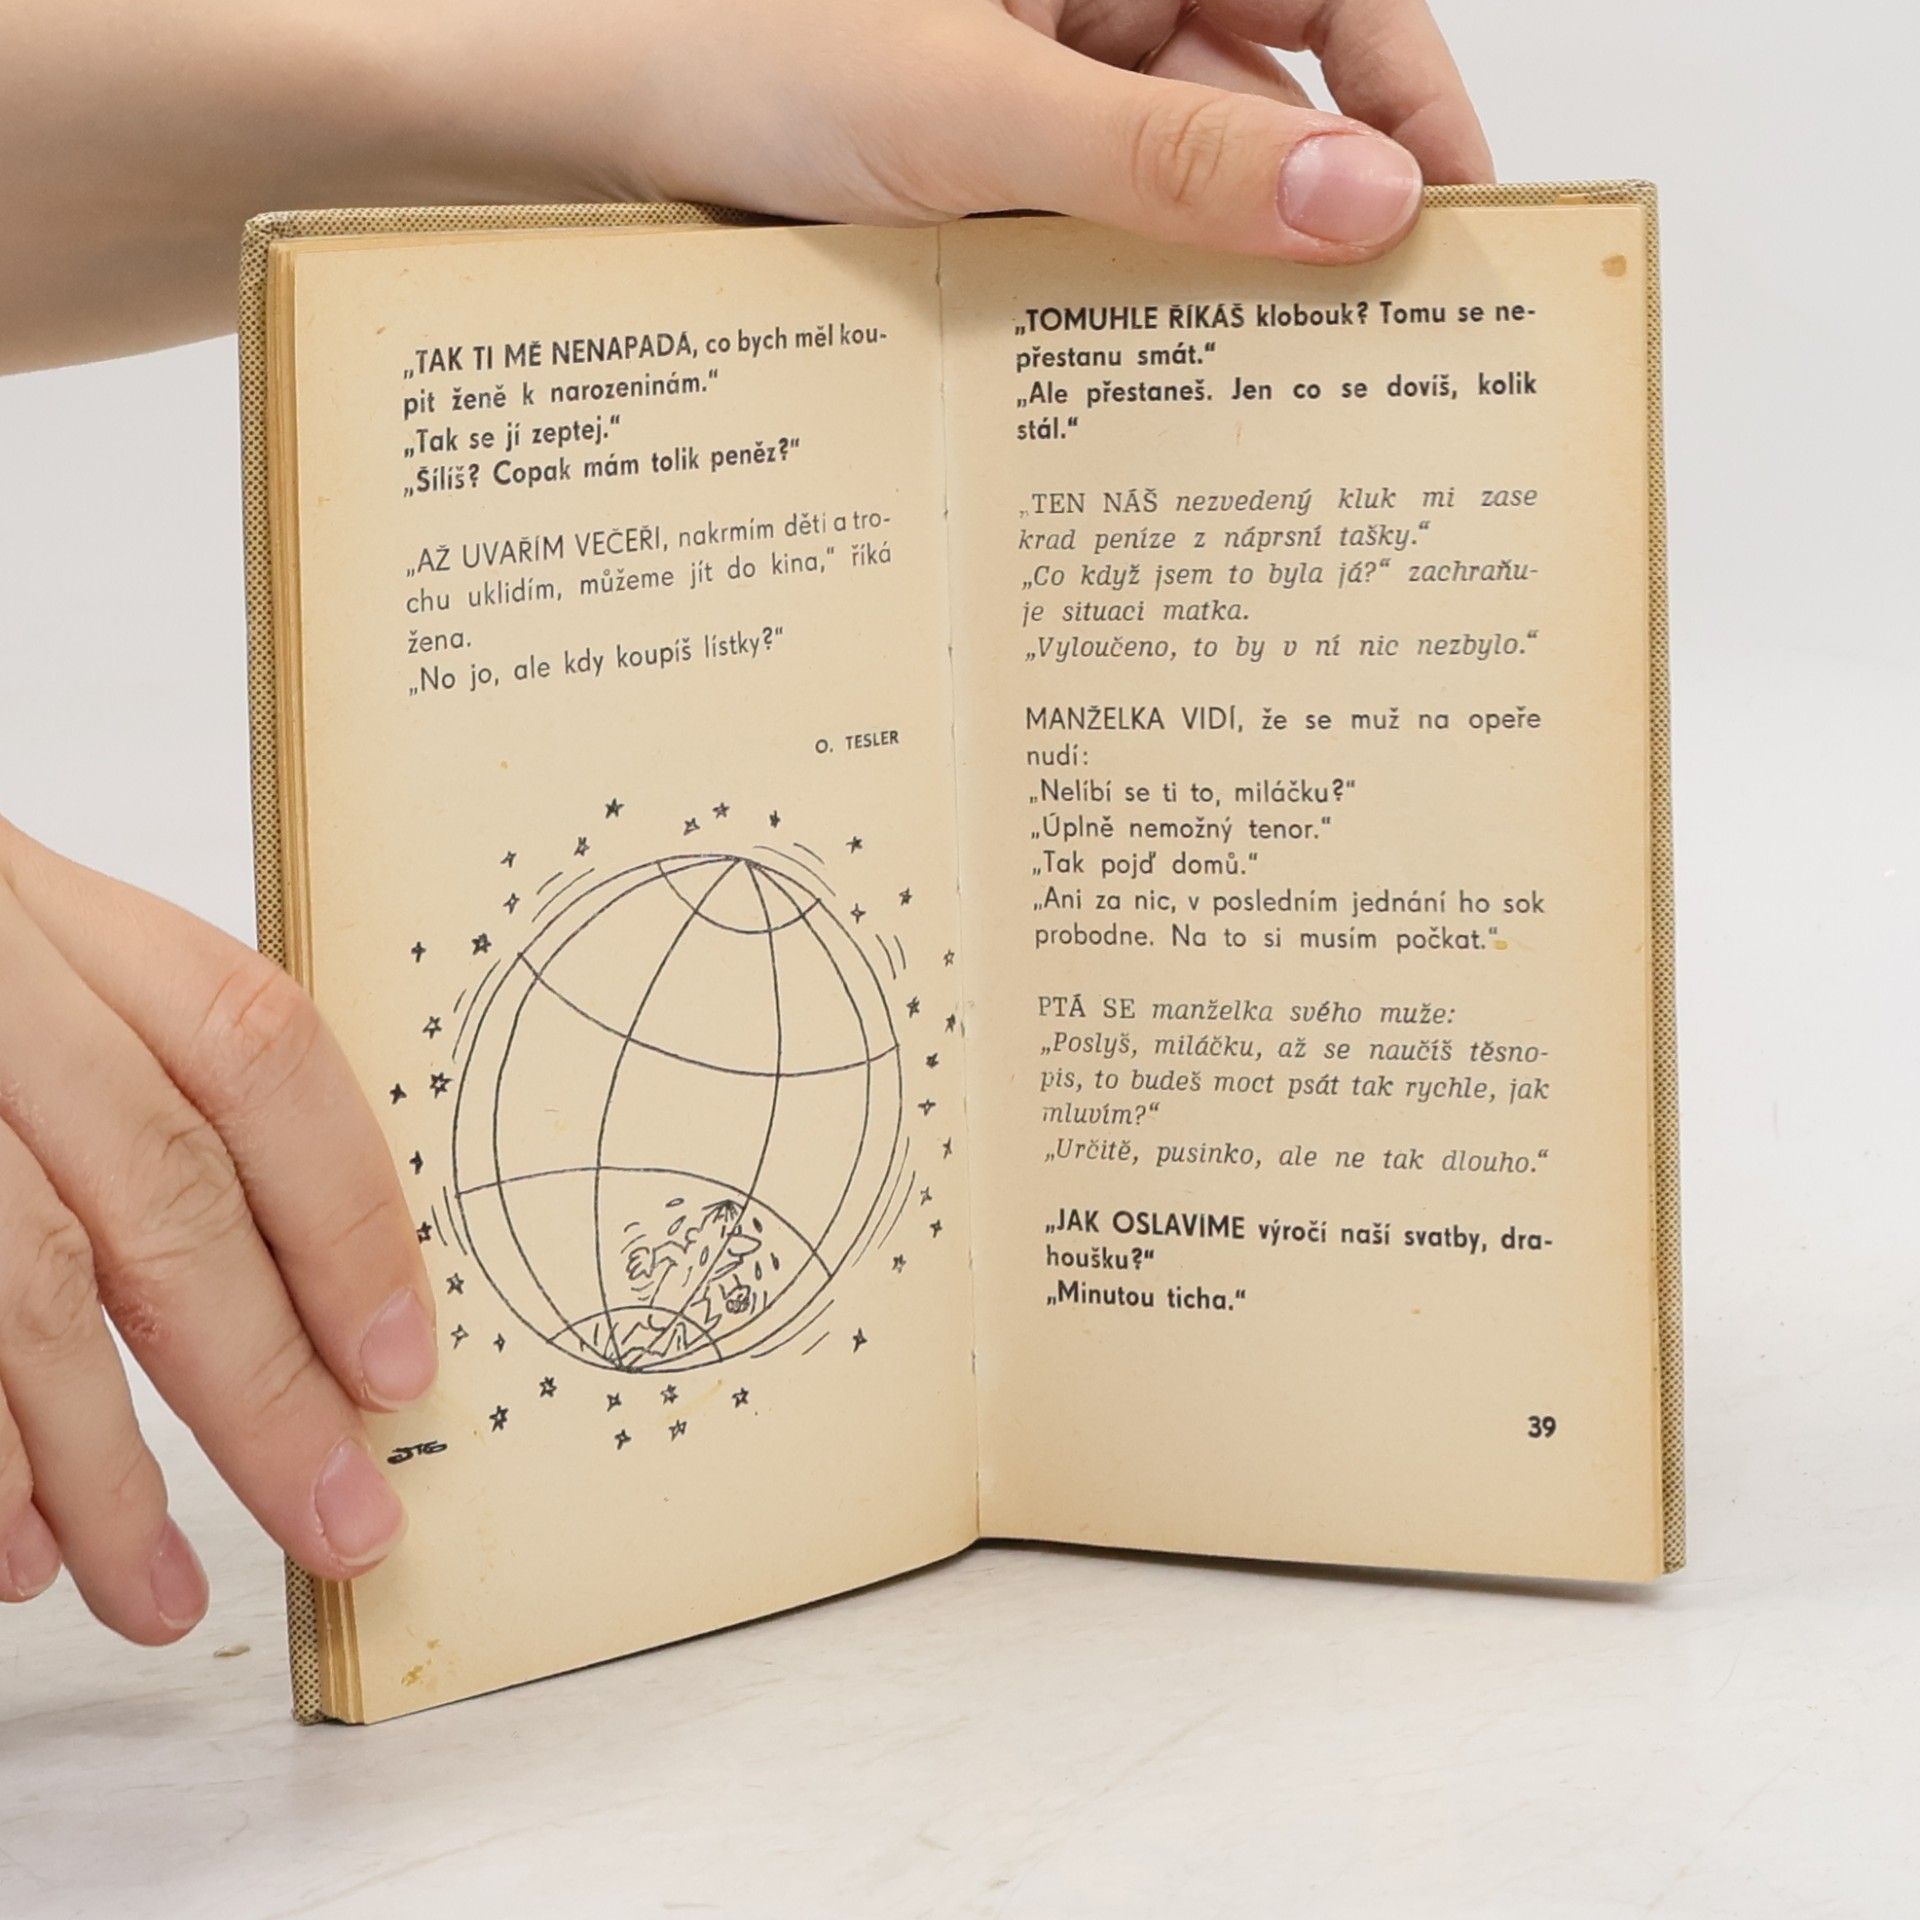 „TAK TI MĚ NENAPADÁ, co bych měl kou-
pit ženě k narozeninám.“
„Tak se jí zeptej.“
„Šílíš? Copak mám tolik peněz?“
„AŽ UVAŘÍM VEČEŘI, nakrmím děti a tro-
chu uklidím, můžeme jít do kina,“ říká
žena.
„No jo, ale kdy koupíš lístky?“
O. TESLER
„TOMUHLE ŘÍKÁŠ klobouk? Tomu se ne-
přestanu smát.“
„Ale přestaneš. Jen co se dovíš, kolik
stál.“
„TEN NÁŠ nezvedený kluk mi zase
krad peníze z náprsní tašky.“
„Co když jsem to byla já?“ zachraňu-
je situaci matka.
„Vyloučeno, to by v ní nic nezbylo.“
MANŽELKA VIDÍ, že se muž na opeře
nudí:
„Nelíbí se ti to, miláčku?“
„Úplně nemožný tenor.“
„Tak pojď domů.“
„Ani za nic, v posledním jednání ho sok
probodne. Na to si musím počkat.“
PTÁ SE manželka svého muže:
„Poslyš, miláčku, až se naučíš těsno-
pis, to budeš moct psát tak rychle, jak
mluvím?“
„Určitě, pusinko, ale ne tak dlouho.“
„JAK OSLAVÍME výročí naší svatby, dra-
houšku?“
„Minutou ticha.“
39